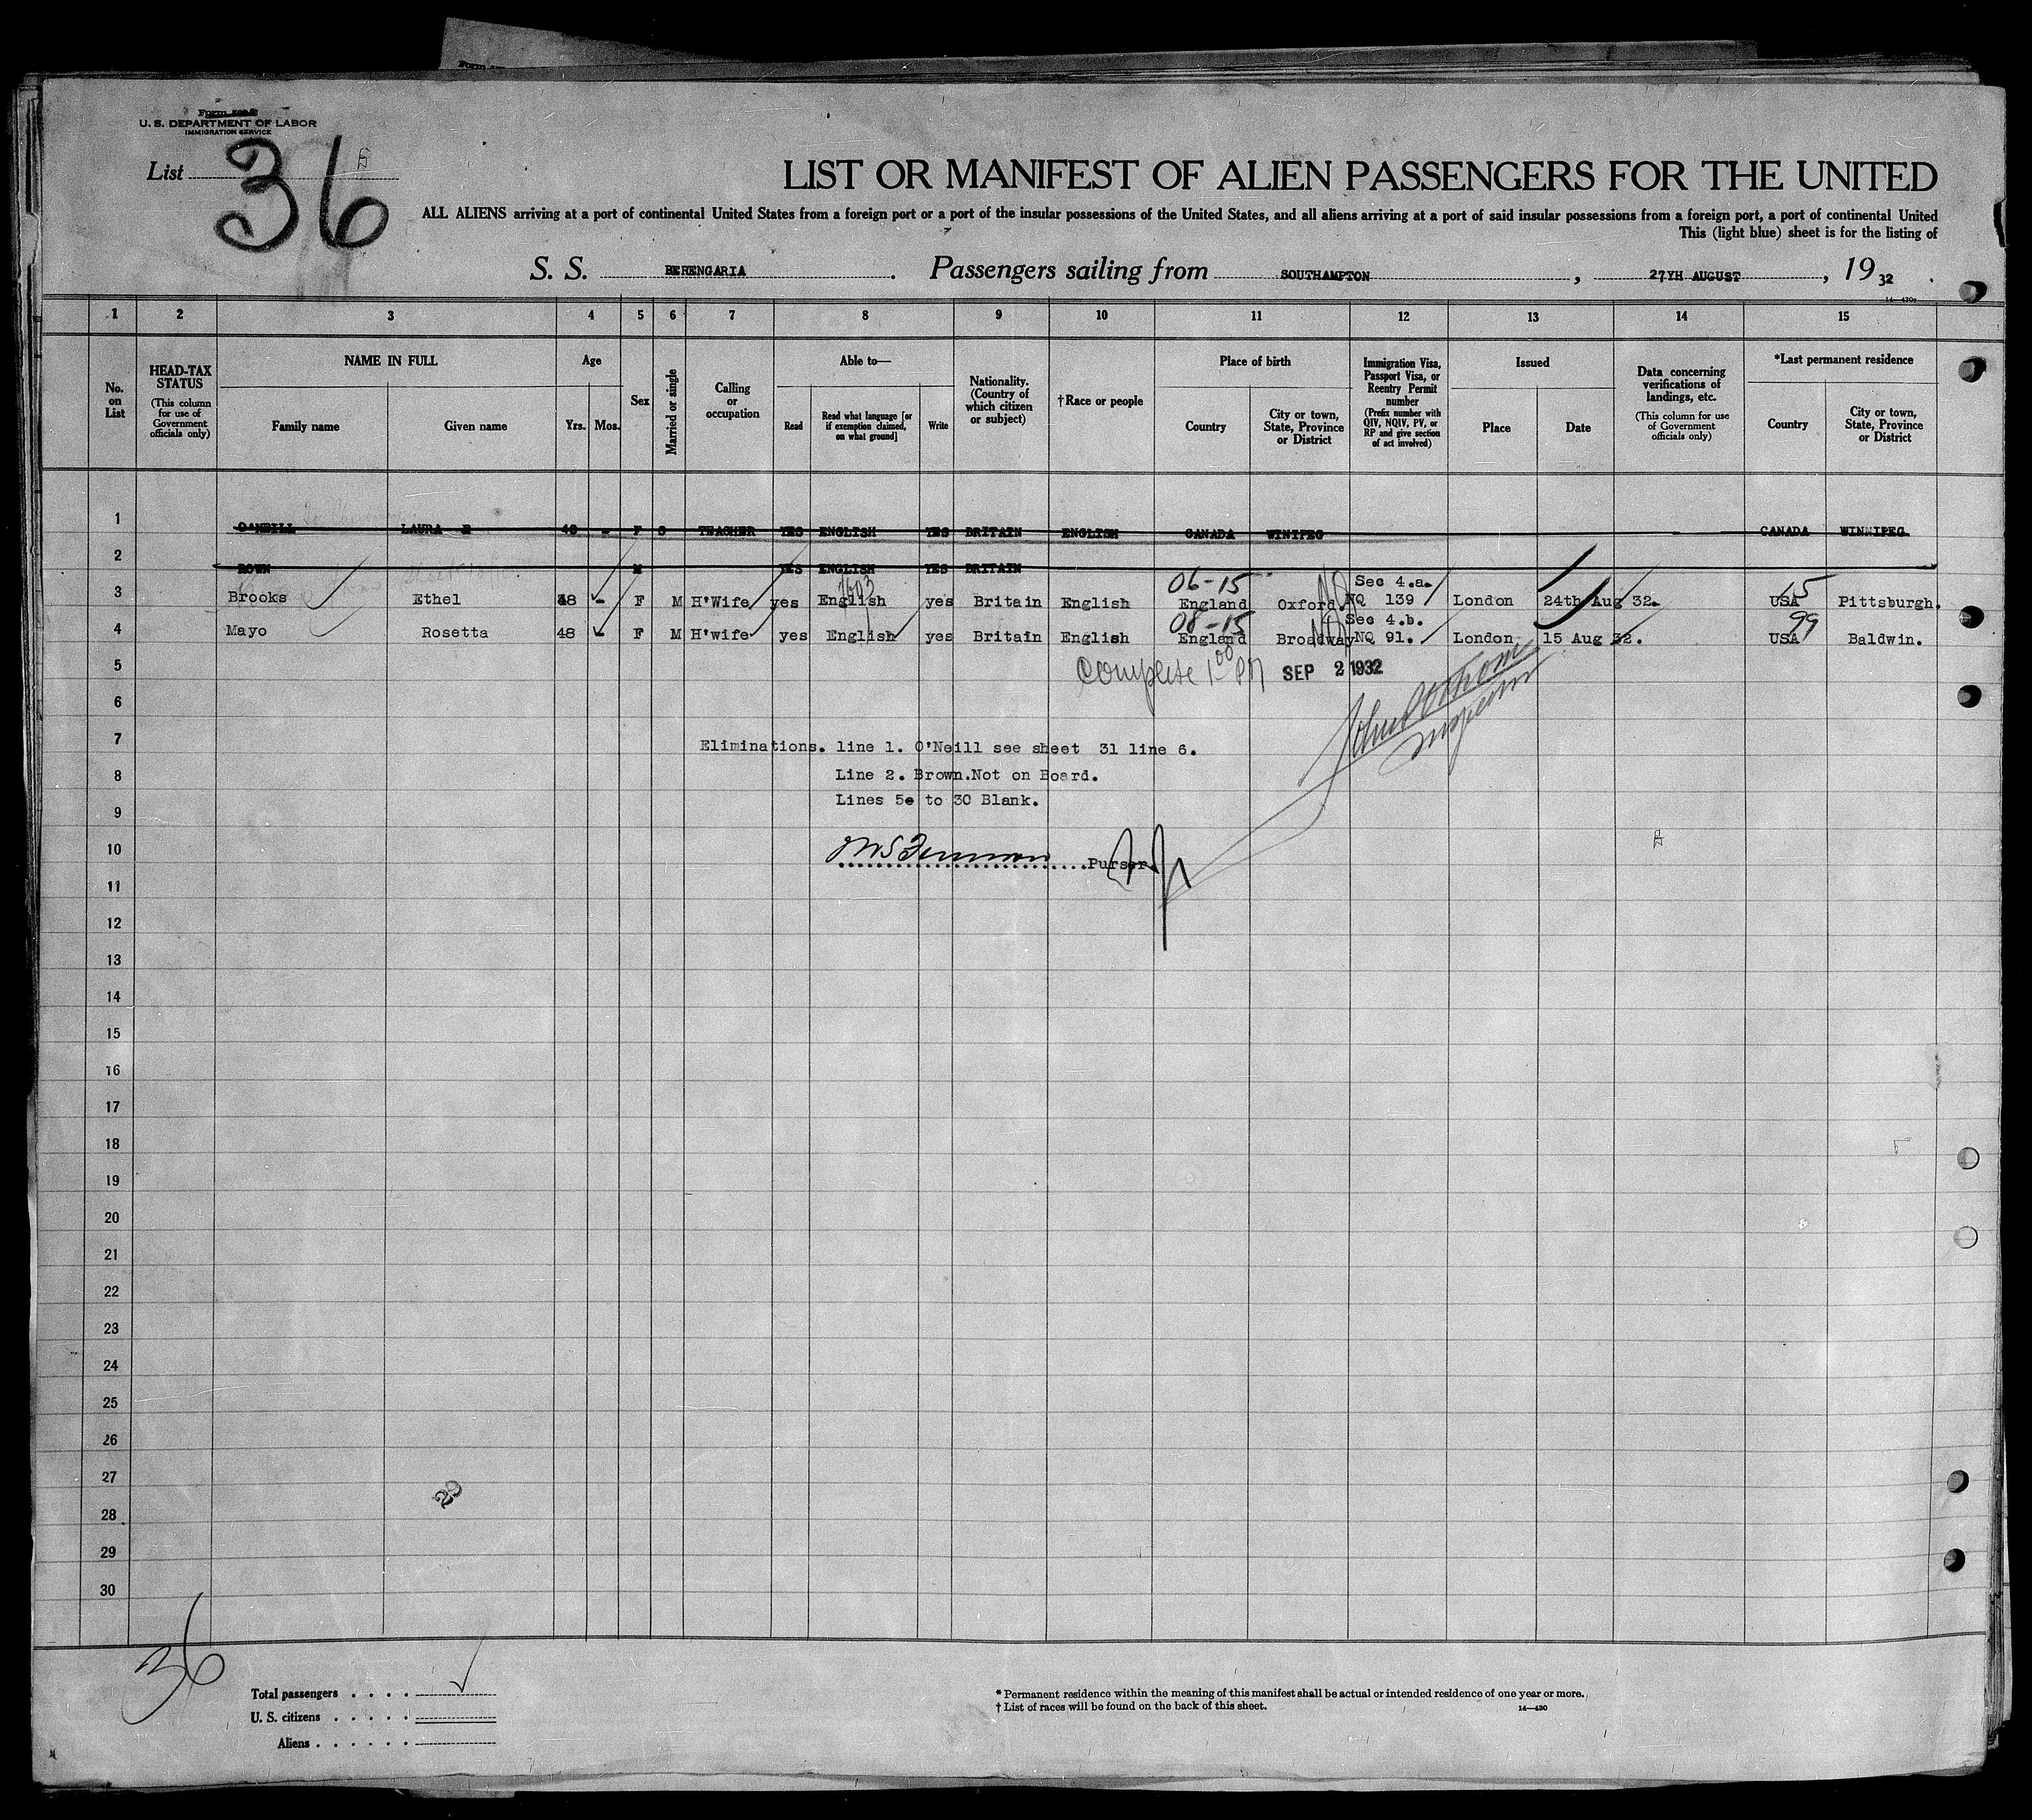 U. S. DEPARTMENT OF LABOR
IMMIGRATION SERVICE
List 36
LIST OR MANIFEST OF ALIEN PASSENGERS FOR THE UNITED
ALL ALIENS arriving at a port of continental United States from a foreign port or a port of the insular possessions of the United States, and all aliens arriving at a port of said insular possessions from a foreign port, a port of continental United
This (light blue) sheet is for the listing of
S. S. BERENGARIA. Passengers sailing from SOUTHAMPTON, 27YH AUGUST, 19 32
1 2 3 4 5 6 7 8 9 10 11 12 13 14 15
No. on List
HEAD-TAX STATUS (This column for use of Government officials only)
NAME IN FULL Family name Given name
Age Yrs. Mos.
Sex
Married or single
Calling or occupation
Able to— Read Read what language [or if exemption claimed, on what ground] Write
Nationality. (Country of which citizen or subject)
†Race or people
Place of birth Country City or town, State, Province or District
Immigration Visa, Passport Visa, or Reentry Permit number (Prefix number with QIV, NQIV, PV, or RP and give section of act involved)
Issued Place Date
Data concerning verifications of landings, etc. (This column for use of Government officials only)
*Last permanent residence Country City or town, State, Province or District
1 O'NEILL LAURA E 48 - F S TEACHER YES ENGLISH YES BRITAIN ENGLISH CANADA WINIPEG CANADA WINNIPEG
2 BOWN M YES ENGLISH YES BRITAIN
06-15 Sec 4.a. 15
3 Brooks Ethel 48 - F M H'Wife yes English yes Britain English England Oxford. NQ 139 London 24th Aug 32. USA Pittsburgh.
08-15 Sec 4.b. 99
4 Mayo Rosetta 48 - F M H'wife yes English yes Britain English England Broadway NQ 91. London 15 Aug 32. USA Baldwin.
5 Complete 1 00 PM SEP 2 1932
6
7 Eliminations. line 1. O'Neill see sheet 31 line 6.
8 Line 2. Brown.Not on Board.
9 Lines 5e to 30 Blank.
10 Purser.
11
12
13
14
15
16
17
18
19
20
21
22
23
24
25
26
27
28
29
30
36
Total passengers
U. S. citizens
Aliens
* Permanent residence within the meaning of this manifest shall be actual or intended residence of one year or more.
† List of races will be found on the back of this sheet. 14—430